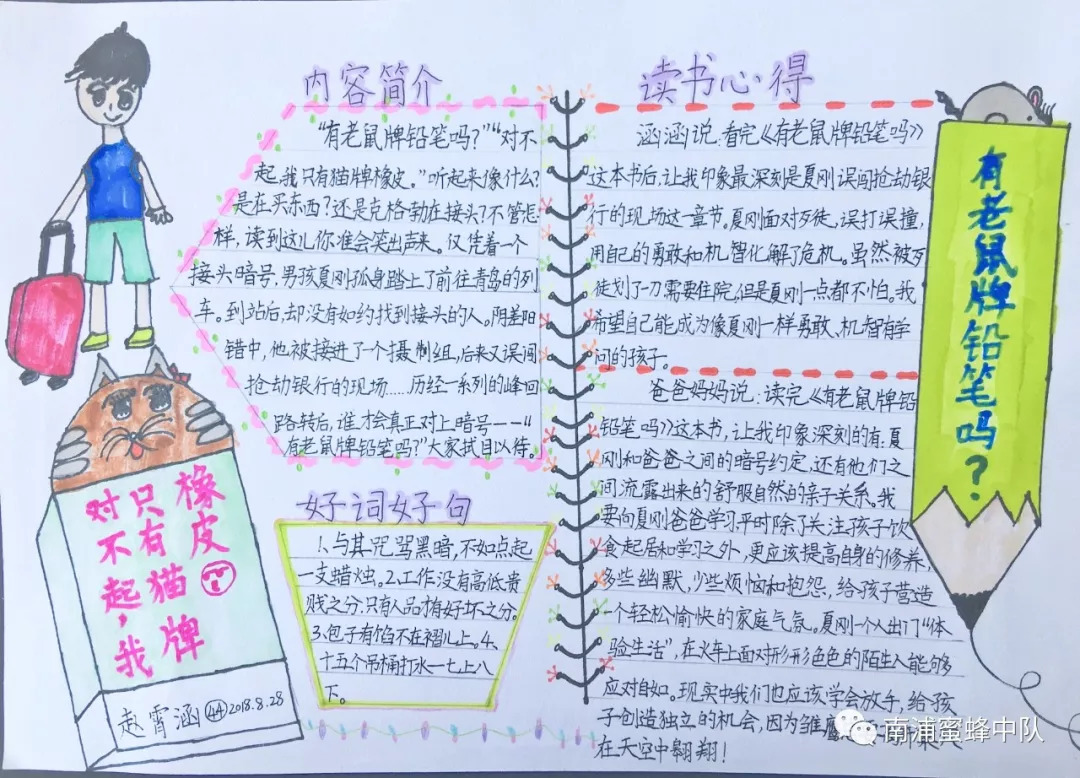 内容简介
“有老鼠牌铅笔吗?”“对不
起,我只有猫牌橡皮。”听起来像什么?
是在买东西?还是克格勃在接头?不管怎
样,读到这儿你准会笑出声来。仅凭着一个
接头暗号,男孩夏刚孤身踏上了前往青岛的列
车。到站后,却没有如约找到接头的人。阴差阳
错中,他被接进了个摄制组,后来又误闯
抢劫银行的现场.....历经一系列的峰回
路转后,谁才会真正对上暗号——“
有老鼠牌铅笔吗?”大家拭目以待。
好词好句
1、与其咒骂黑暗,不如点起
一支蜡烛。2、工作没有高低贵
贱之分,只有人品才有好坏之分。
3、包子有馅不在褶儿上。4、
十五个吊桶打水一七上八
下。
读书心得
涵涵说:看完《有老鼠牌铅笔吗》
这本书后,让我印象最深刻是夏刚误闯抢劫银
行的现场这一章节。夏刚面对歹徒,误打误撞,
用自己的勇敢和机智化解了危机。虽然被歹
徒划了一刀需要住院,但是夏刚一点都不怕。我
希望自己能成为像夏刚一样勇敢、机智有学
问的孩子。
爸爸妈妈说:读完《有老鼠牌铅
铅笔吗》这本书,让我印象深刻的有:夏
刚和爸爸之间的暗号约定,还有他们之
间流露出来的舒服自然的亲子关系。我
要向夏刚爸爸学习,平时除了关注孩子饮
食起居和学习之外,更应该提高自身的修养,
多些幽默,少些烦恼和抱怨,给孩子营造
一个轻松愉快的家庭气氛。夏刚一个人出门“体
验生活”,在火车上面对形形色色的陌生人能够
应对自如。现实中我们也应该学会放手,给孩
子创造独立的机会,因为雏
在天空中翱翔!
有老鼠牌铅笔吗?
橡皮
只有猫牌
对不起,我
赵霄涵 44 2018.8.28
南浦蜜蜂中队